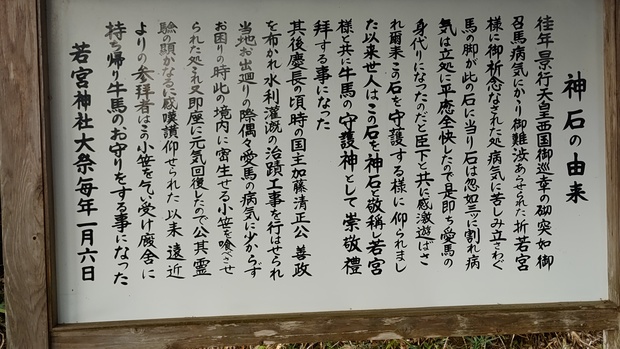 神石の由来
往年景行天皇西国御巡幸の砌突如御
召馬病気にかり御難渋あらせられた折若宮
様に御祈念なされた処病気に苦しみ立さわぐ
馬の脚が此の石に当り石は忽如二ッに割れ病
気は立処に平癒全快したので是即ち愛馬の
身代りになつたのだと臣下と共に感激遊ばさ
れ爾来この石を守護する様に仰られまし
た以来世人はこの石を神石と敬称し若宮
様と共に牛馬の守護神として崇敬禮
拝する事になつた
其後慶長の頃時の国主加藤清正公善政
を布かれ水利灌漑の治蹟工事を行はせられ
当地お出廻りの際偶々愛馬の病気に少からず
お困りの時此の境内に密生せる小笹を喰べさせ
られた処これ又即座に元気回復したので公其霊
験の顕かなるに感嘆讃仰せられた以来遠近
よりの参拝者はこの小笹を乞い受け廐舍に
持ち帰り牛馬のお守りをする事になつた
若宮神社大祭毎年一月六日